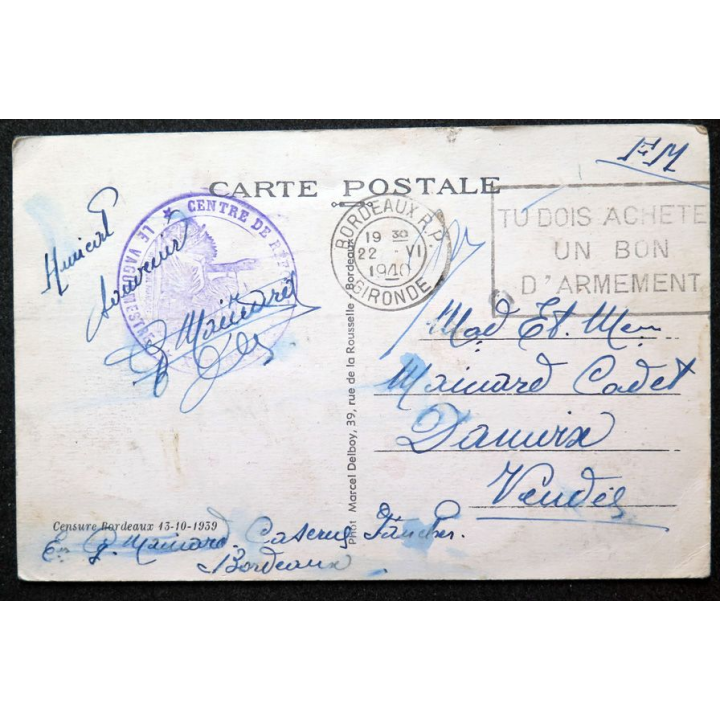 FM
CARTE POSTALE
★ CENTRE DE
LE VAGUEMESTRE
BORDEAUX R.P.
19 30
22 VI
1940
GIRONDE
TU DOIS ACHETE
UN BON
D'ARMEMENT
Amical
souvenir
Mainard
Mad Et
Mainard Cadet
Damvix
Vendée
Phot Marcel Delboy, 39, rue de la Rousselle - Bordeaux
Censure Bordeaux 13-10-1939
Mainard. Caserne Faucher.
Bordeaux